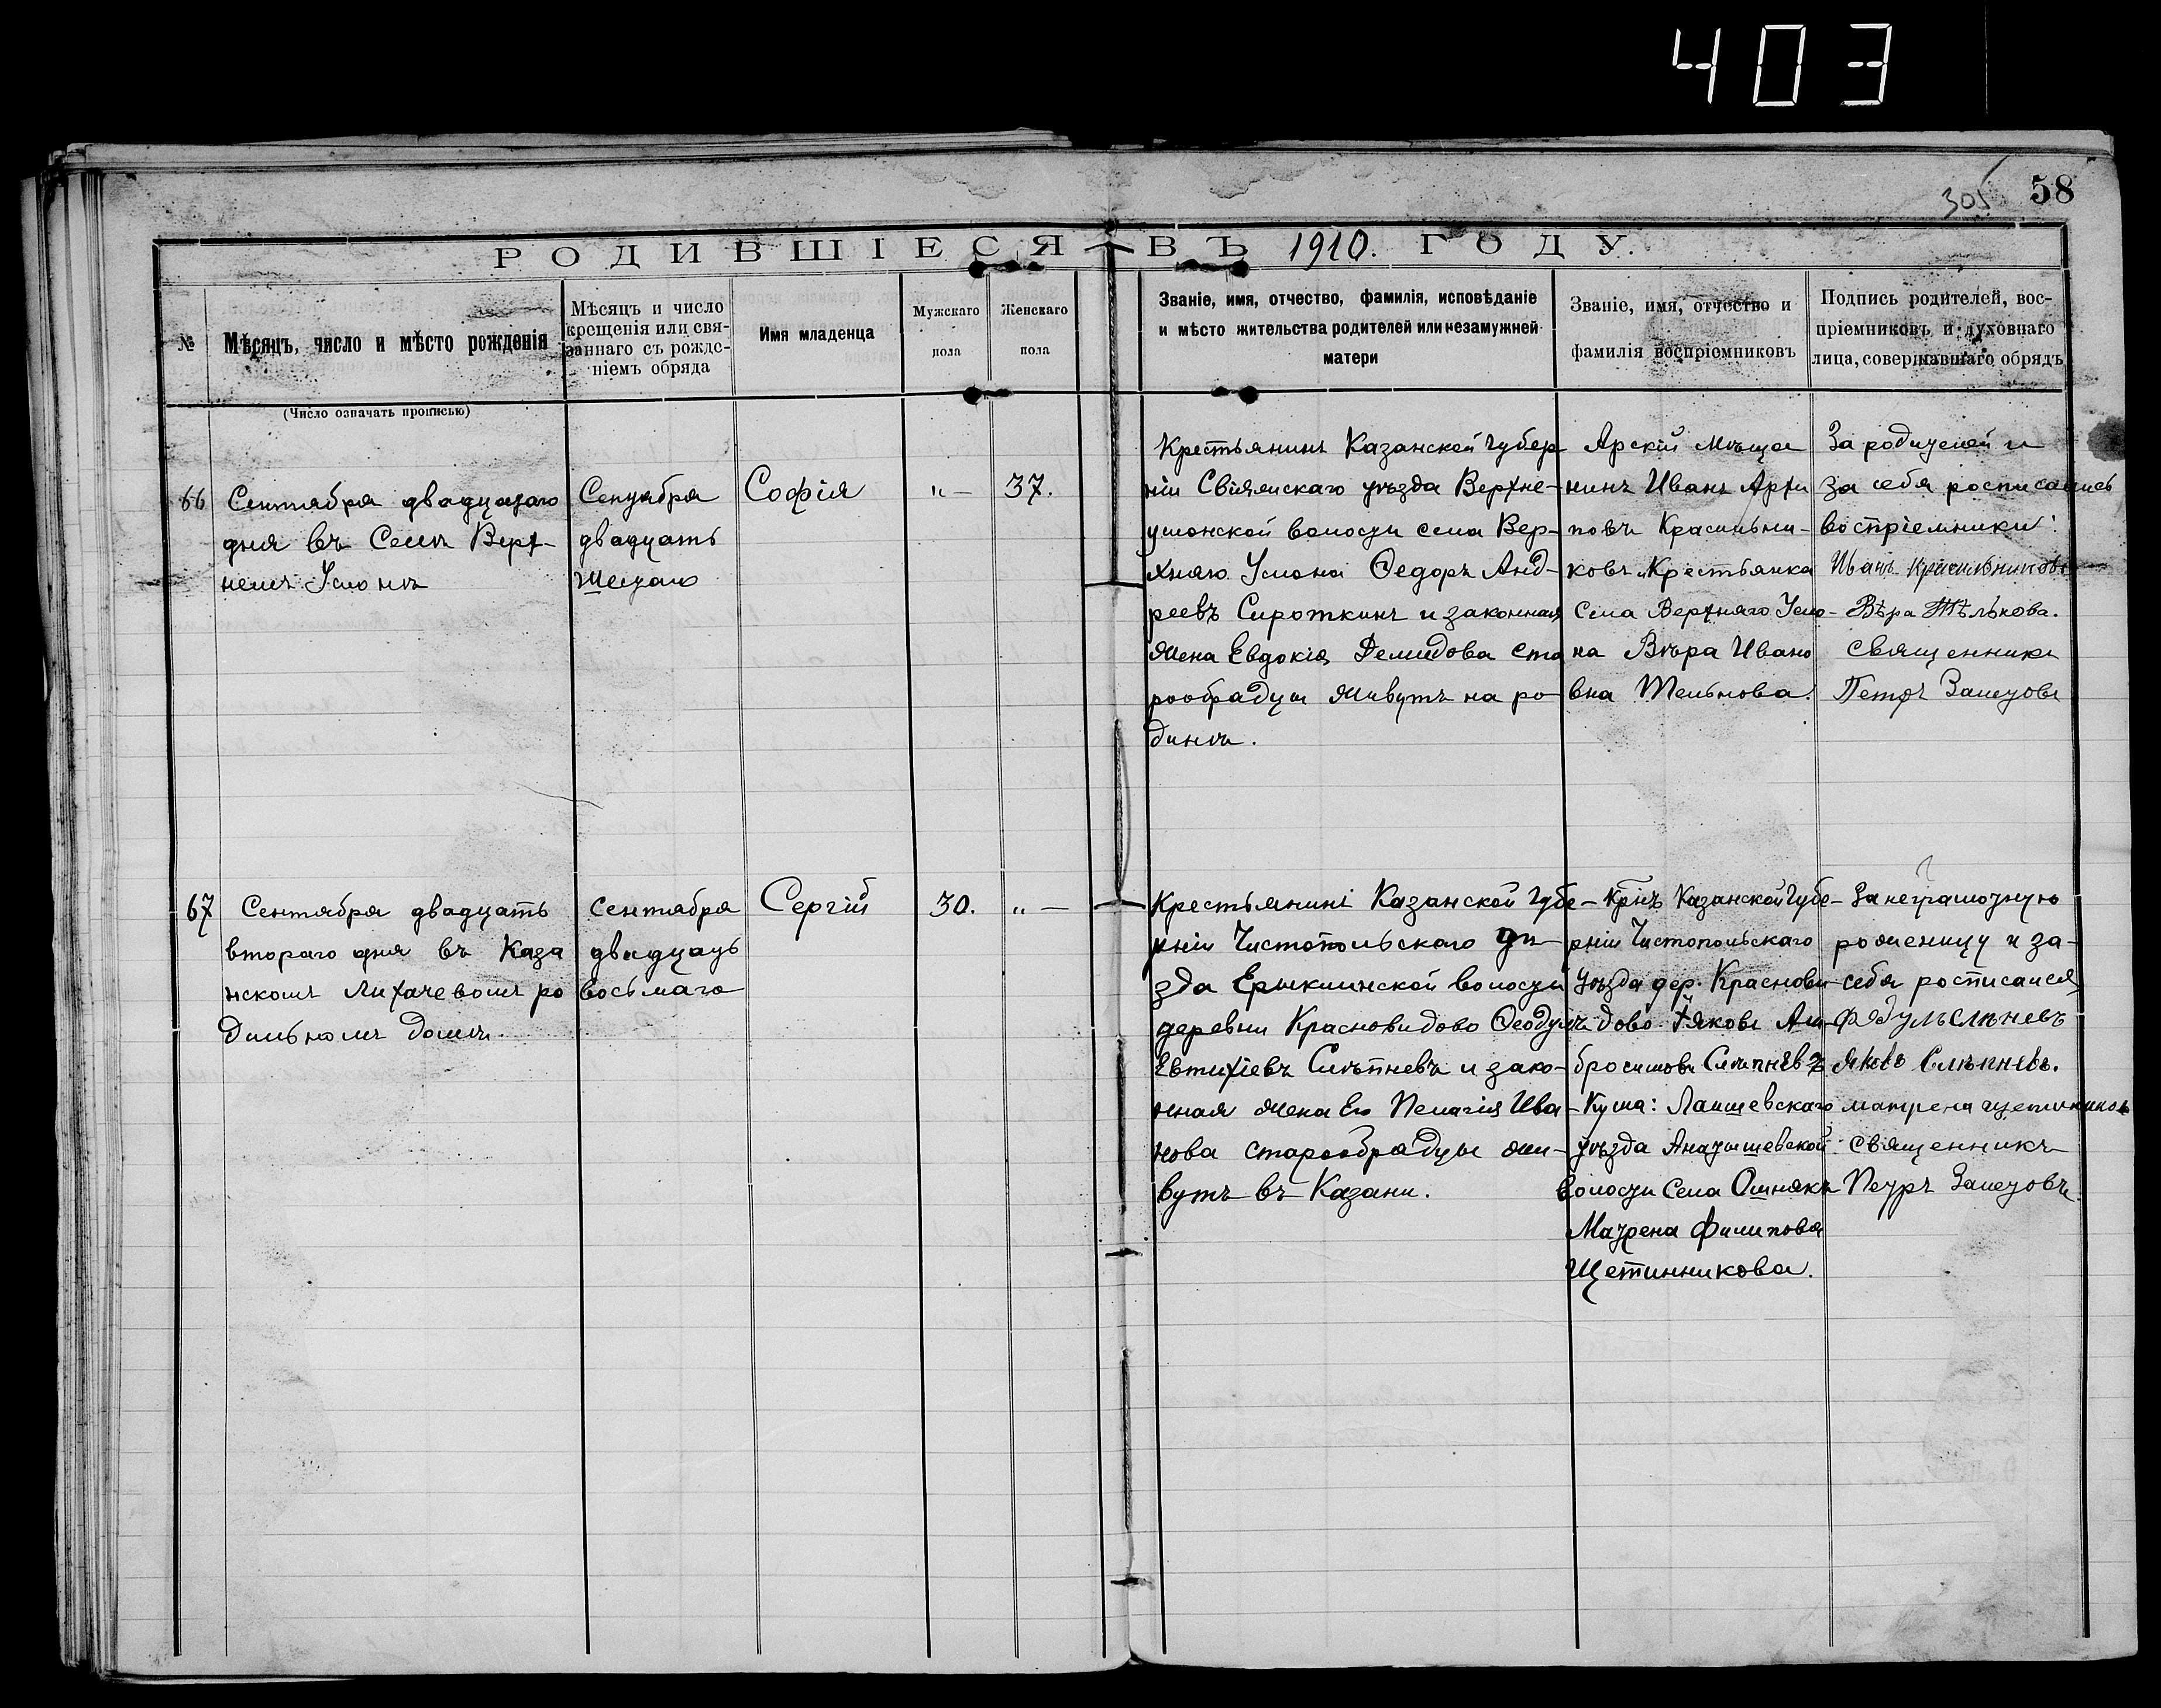 403
305 58
РОДИВШІЕСЯ ВЪ 1910. ГОДУ.
№
Мѣсяцъ, число и мѣсто рожденія
(Число означать прописью)
Мѣсяцъ и число
крещенія или свя-
заннаго съ рожде-
ніемъ обряда
Имя младенца
Мужскаго
пола
Женскаго
пола
Званіе, имя, отчество, фамилія, исповѣданіе
и мѣсто жительства родителей или незамужней
матери
Званіе, имя, отчество и
фамилія воспріемниковъ
Подпись родителей, вос-
пріемниковъ и духовнаго
лица, совершавшаго обрядъ
66
Сентября двадцатаго
дня въ Селѣ Верх-
немъ Услонѣ
Сентября
двадцать
шестаго
Софія
"-
37.
Крестьянинъ Казанской губер
ніи Свіяжскаго уѣзда Верхне-
услонской волости села Вер-
хняго Услона Ѳедоръ Анд-
реевъ Сироткинъ и законная
жена Евдокія Демидова ста
рообрядцы живутъ на ро-
динѣ.
Арскій мѣща
нинъ Иванъ Архи
повъ Красильни-
ковъ Крестьянка
Села Верхняго Усло-
на Вѣра Ивано
вна Тельнова.
За родителей и
за себя росписались
воспріемники:
Иванъ Красильниковъ
Вѣра Тѣлькова.
Священникъ
Петръ Залетовъ
67
Сентября двадцать
втораго дня въ Каза
нскомъ Лихачевомъ ро
дильномъ домѣ.
Сентября
двадцать
восьмаго
Сергій
30.
"-
Крестьянинъ Казанской Губе-
рніи Чистопольскаго уѣ-
зда Ерыклинской волости
деревни Красновидово Ѳеодулъ
Евтихіевъ Слѣпневъ и зако-
нная жена Его Пелагія Ива-
нова старообрядцы жи-
вутъ въ Казани.
Крнъ Казанской Губе-
рніи Чистопольскаго
Уѣзда дер. Краснови-
дово Яковъ Ам-
бросимовъ Слѣпневъ
Кума: Лаишевскаго
уѣзда Анатышевской
волости Села Ошнякъ
Матрена Филипова
Щетинникова.
За неграмотную
роженицу и за-
себя росписался
Фядулъ Слѣпневъ
Яковъ Слѣпневъ.
матрена щетинникова
Священникъ
Петръ Залетовъ.